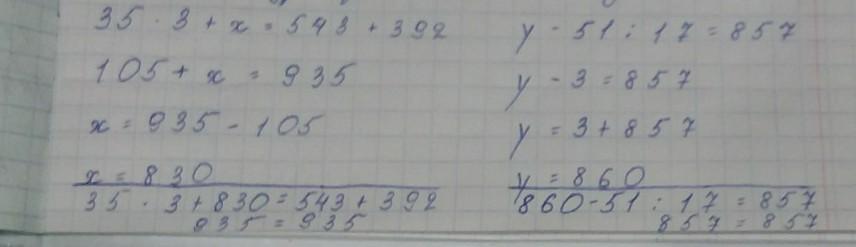 35 · 3 + x = 543 + 392
105 + x = 935
x = 935 - 105
x = 830
35 · 3 + 830 = 543 + 392
935 = 935
y - 51 : 17 = 857
y - 3 = 857
y = 3 + 857
y = 860
860 - 51 : 17 = 857
857 = 857